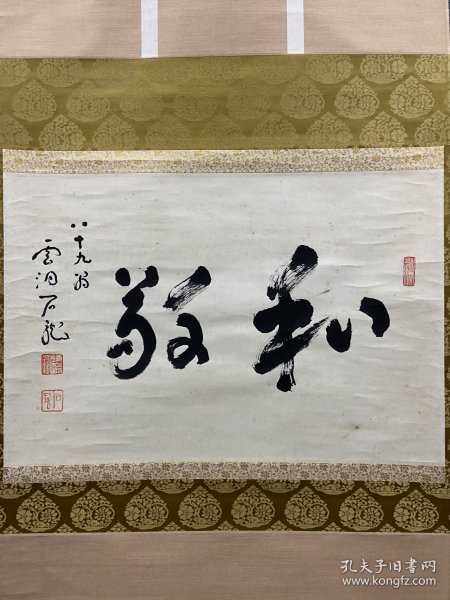 和敬
八十九翁
雲洞石龍
孔夫子旧书网
www.kongfz.com